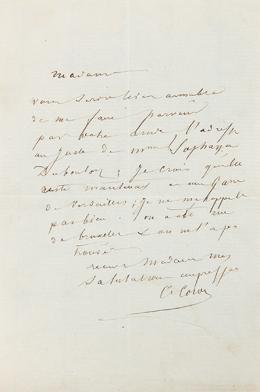 Madame
vous seriez bien aimable
de me faire parvenir
par votre bonne l'adresse
au juste de mme Sophaya
Dubouloz; je crois qu'elle
reste maintenant
de Versailles; je ne me rappelle
pas bien. on a été rue
de bruxelles & on ne l'a pas
trouvée
recevez Madame mes
salutations empressées
C. Corot